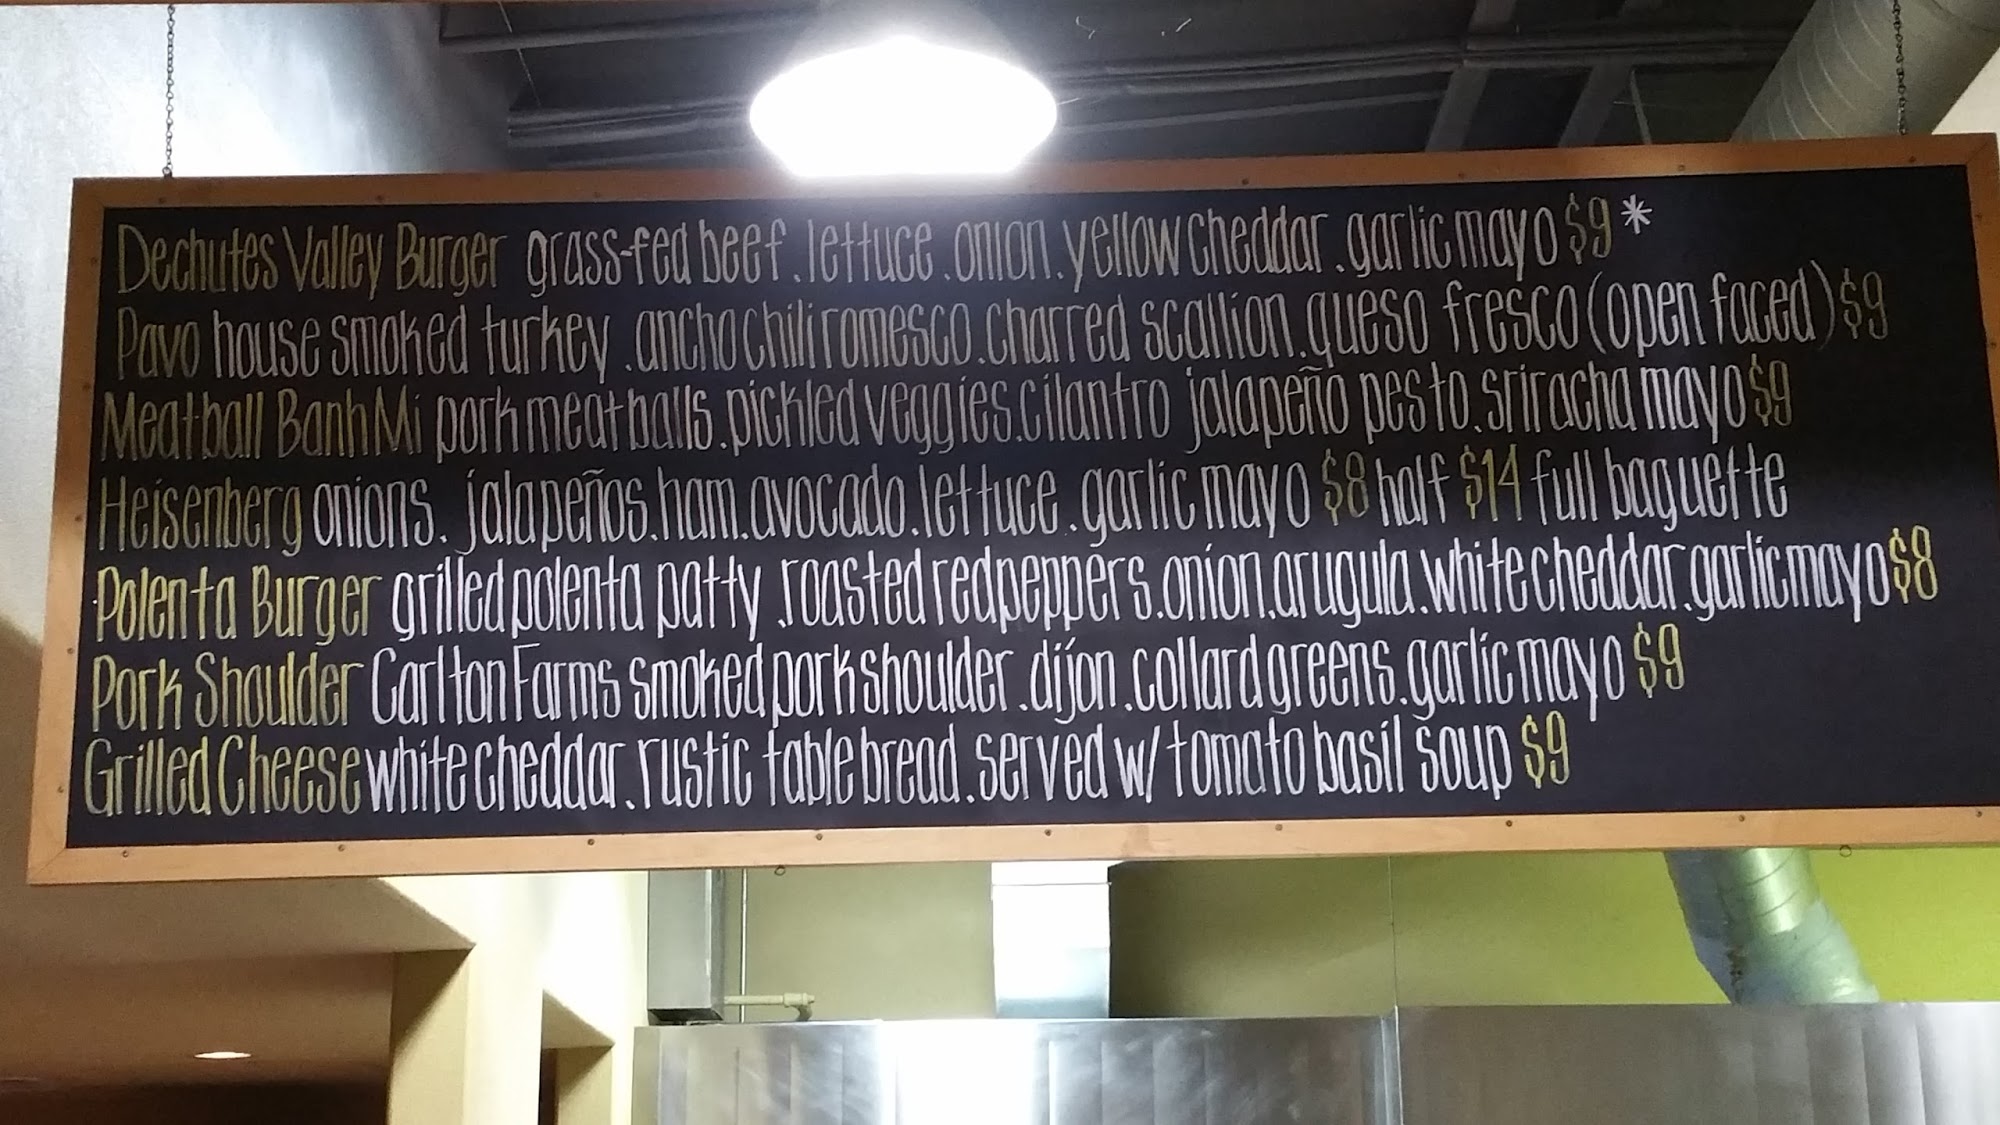 Dechutes Valley Burger grass-fed beef. lettuce. onion. yellow cheddar. garlic mayo $9 *
Pavo house smoked turkey. ancho chili romesco. charred scallion. queso fresco (open faced) $9
Meatball Banh Mi pork meatballs. pickled veggies. cilantro jalapeño pesto. sriracha mayo $9
Heisenberg onions. jalapeños. ham. avocado. lettuce. garlic mayo $8 half $14 full baguette
Polenta Burger grilled polenta patty. roasted red peppers. onion. arugula. white cheddar. garlic mayo $8
Pork Shoulder Carlton Farms smoked pork shoulder. dijon. collard greens. garlic mayo $9
Grilled Cheese white cheddar. rustic table bread. served w/ tomato basil soup $9